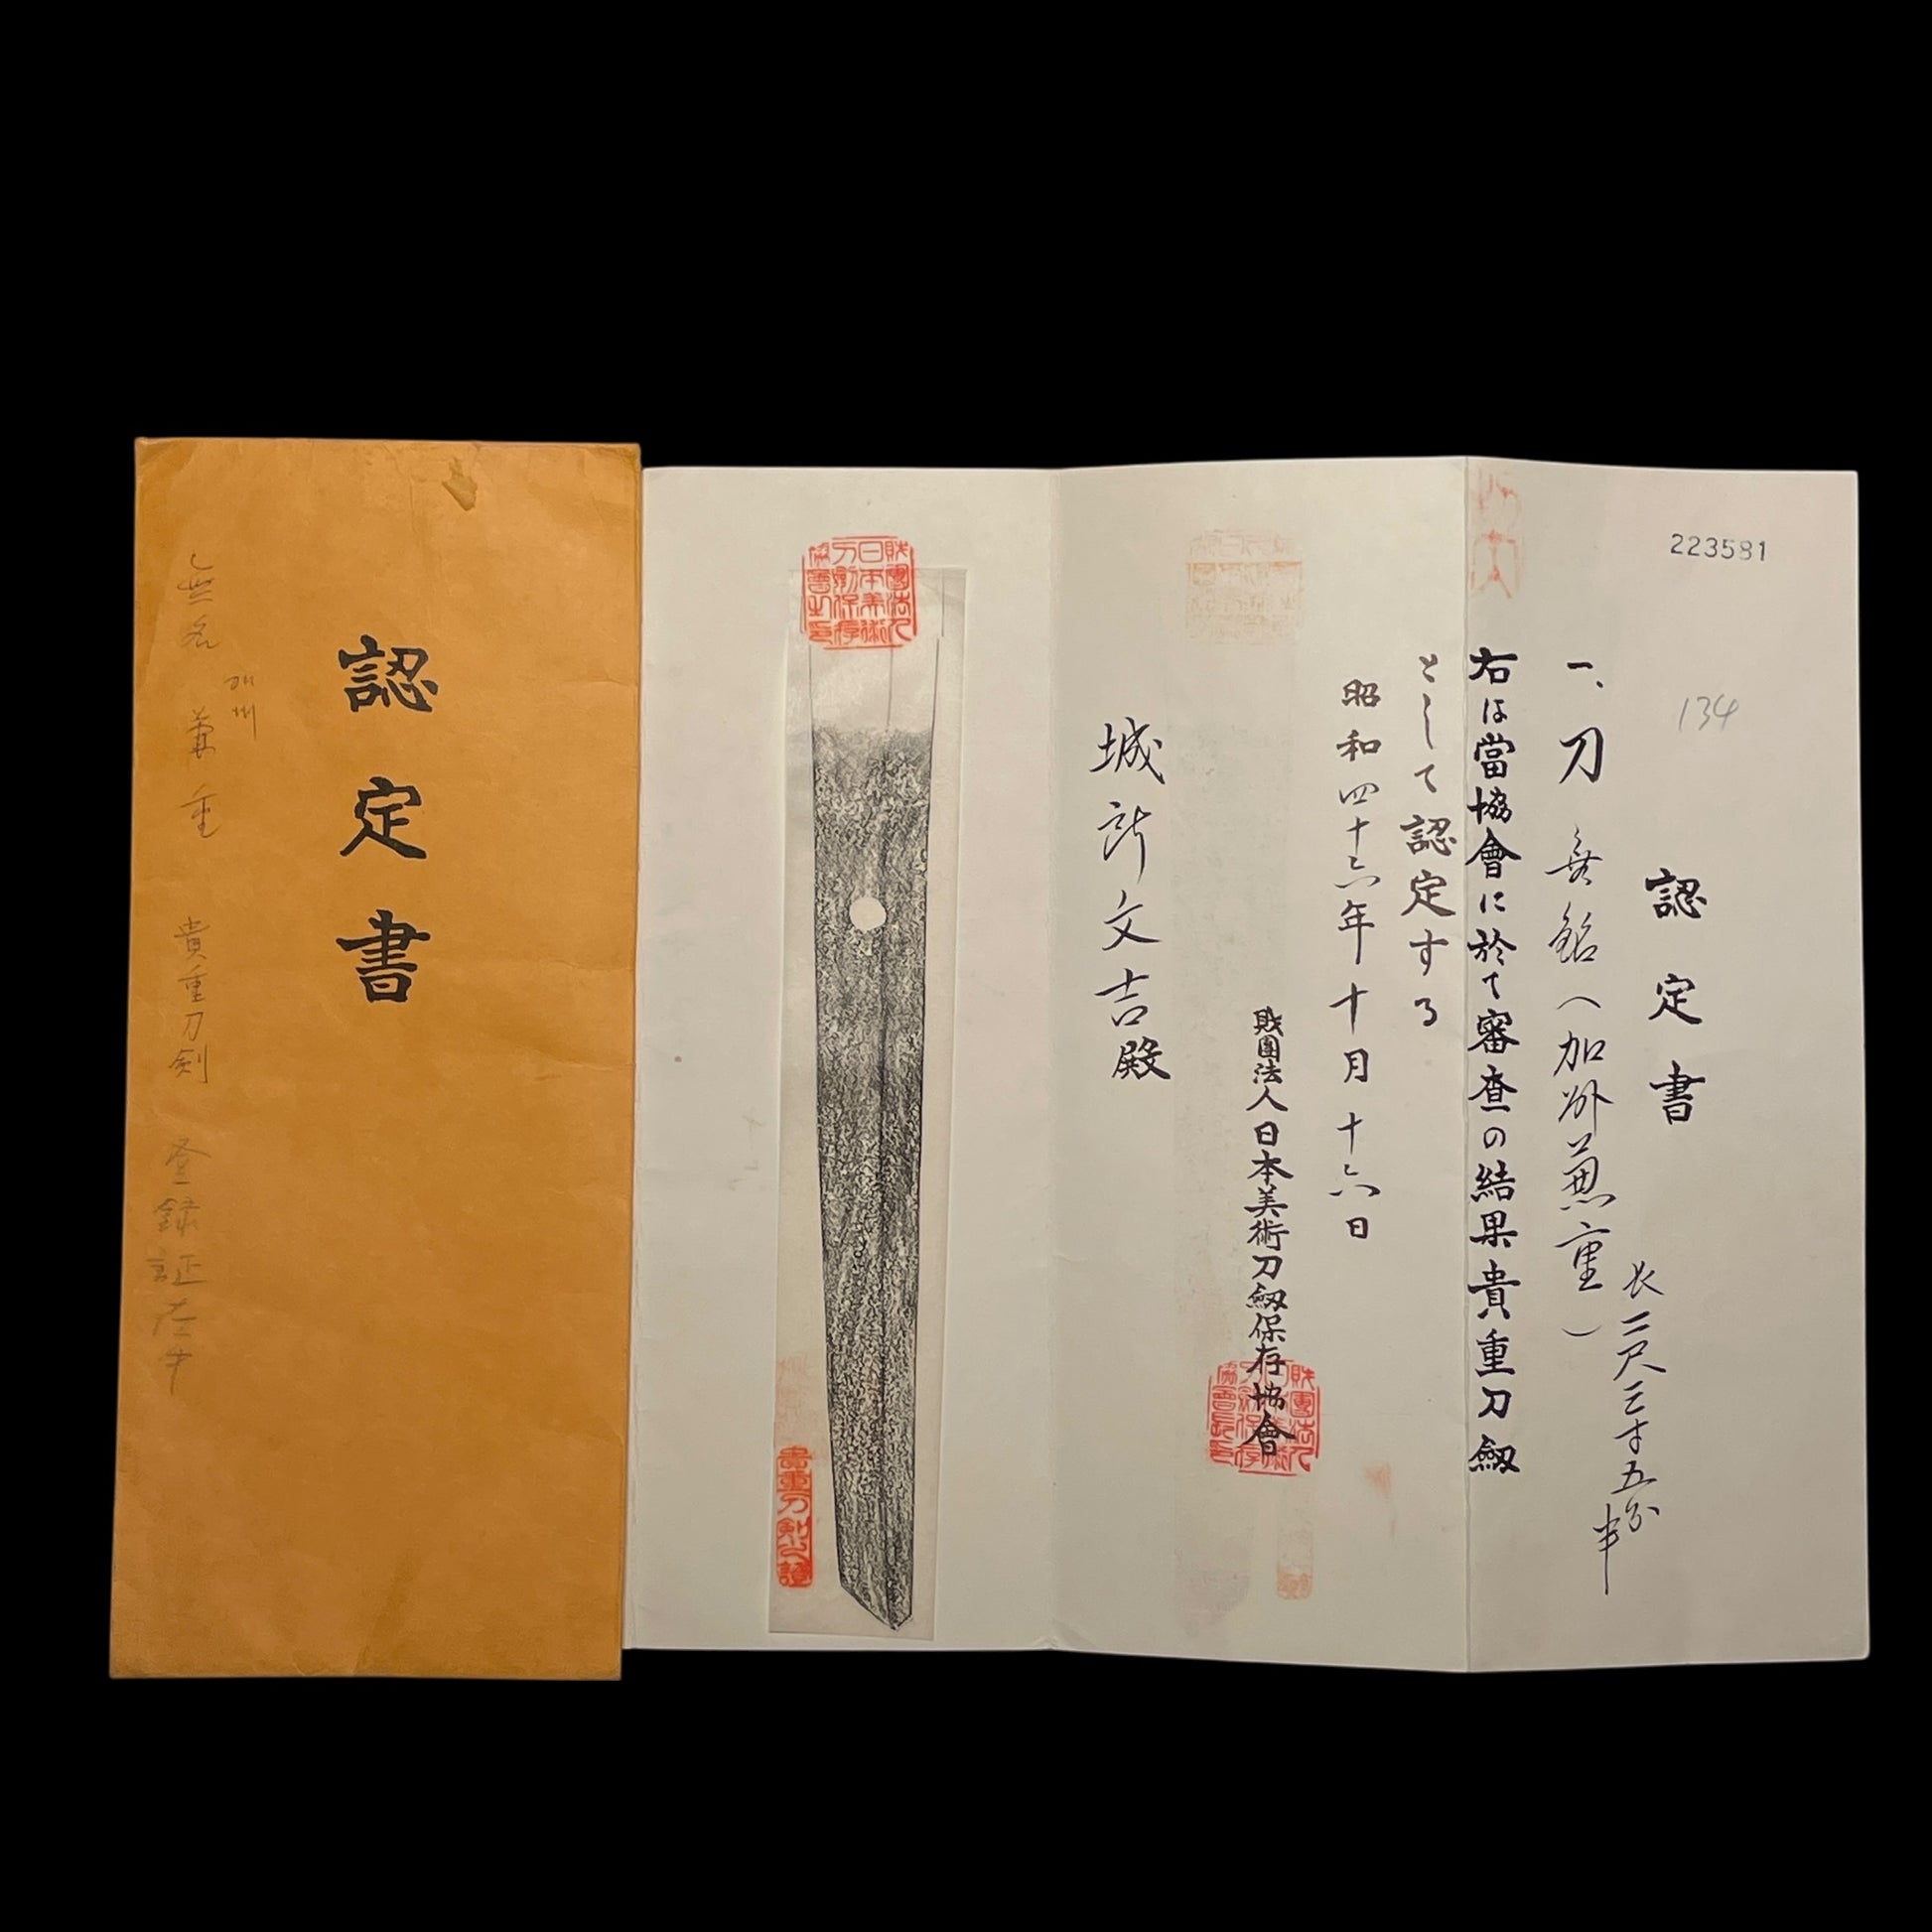 認定書
無名 加州 兼重 貴重刀剣 登録証
223581
134
認定書
一、刀 無銘(加州兼重)
長二尺三寸五分半
右は當協會に於て審査の結果貴重刀劔
として認定する
昭和四十六年十月十六日
財團法人日本美術刀劔保存協會
財團法人日本美術刀剣保存協會長印
城所文吉殿
財團法人日本美術刀剣保存協會之印
貴重刀剣之證